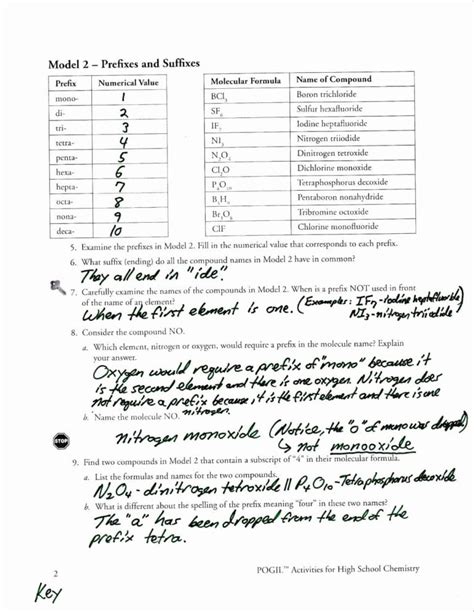 Model 2 – Prefixes and Suffixes
Prefix Numerical Value
mono- 1
di- 2
tri- 3
tetra- 4
penta- 5
hexa- 6
hepta- 7
octa- 8
nona- 9
deca- 10
Molecular Formula Name of Compound
BCl3 Boron trichloride
SF6 Sulfur hexafluoride
IF7 Iodine heptafluoride
NI3 Nitrogen triiodide
N2O4 Dinitrogen tetroxide
Cl2O Dichlorine monoxide
P4O10 Tetraphosphorus decoxide
B5H9 Pentaboron nonahydride
Br3O8 Tribromine octoxide
ClF Chlorine monofluoride
5. Examine the prefixes in Model 2. Fill in the numerical value that corresponds to each prefix.
6. What suffix (ending) do all the compound names in Model 2 have in common?
They all end in "ide"
7. Carefully examine the names of the compounds in Model 2. When is a prefix NOT used in front
of the name of an element? (Examples: IF7 -Iodine heptafluoride
When the first element is one. NI3 -nitrogen triiodide
8. Consider the compound NO.
a. Which element, nitrogen or oxygen, would require a prefix in the molecule name? Explain
your answer.
Oxygen would require a prefix of "mono" because it
is the second element and there is one oxygen. Nitrogen does
not require a prefix because it is the first element and there is one
nitrogen.
b. Name the molecule NO.
STOP
nitrogen monoxide (Notice, the "o" of mono was dropped)
↳ not monooxide
9. Find two compounds in Model 2 that contain a subscript of "4" in their molecular formula.
a. List the formulas and names for the two compounds.
N2O4 - dinitrogen tetroxide || P4O10 -Tetraphosphorus decoxide
b. What is different about the spelling of the prefix meaning "four" in these two names?
The "a" has been dropped from the end of the
prefix tetra.
2 POGIL™ Activities for High School Chemistry
Key